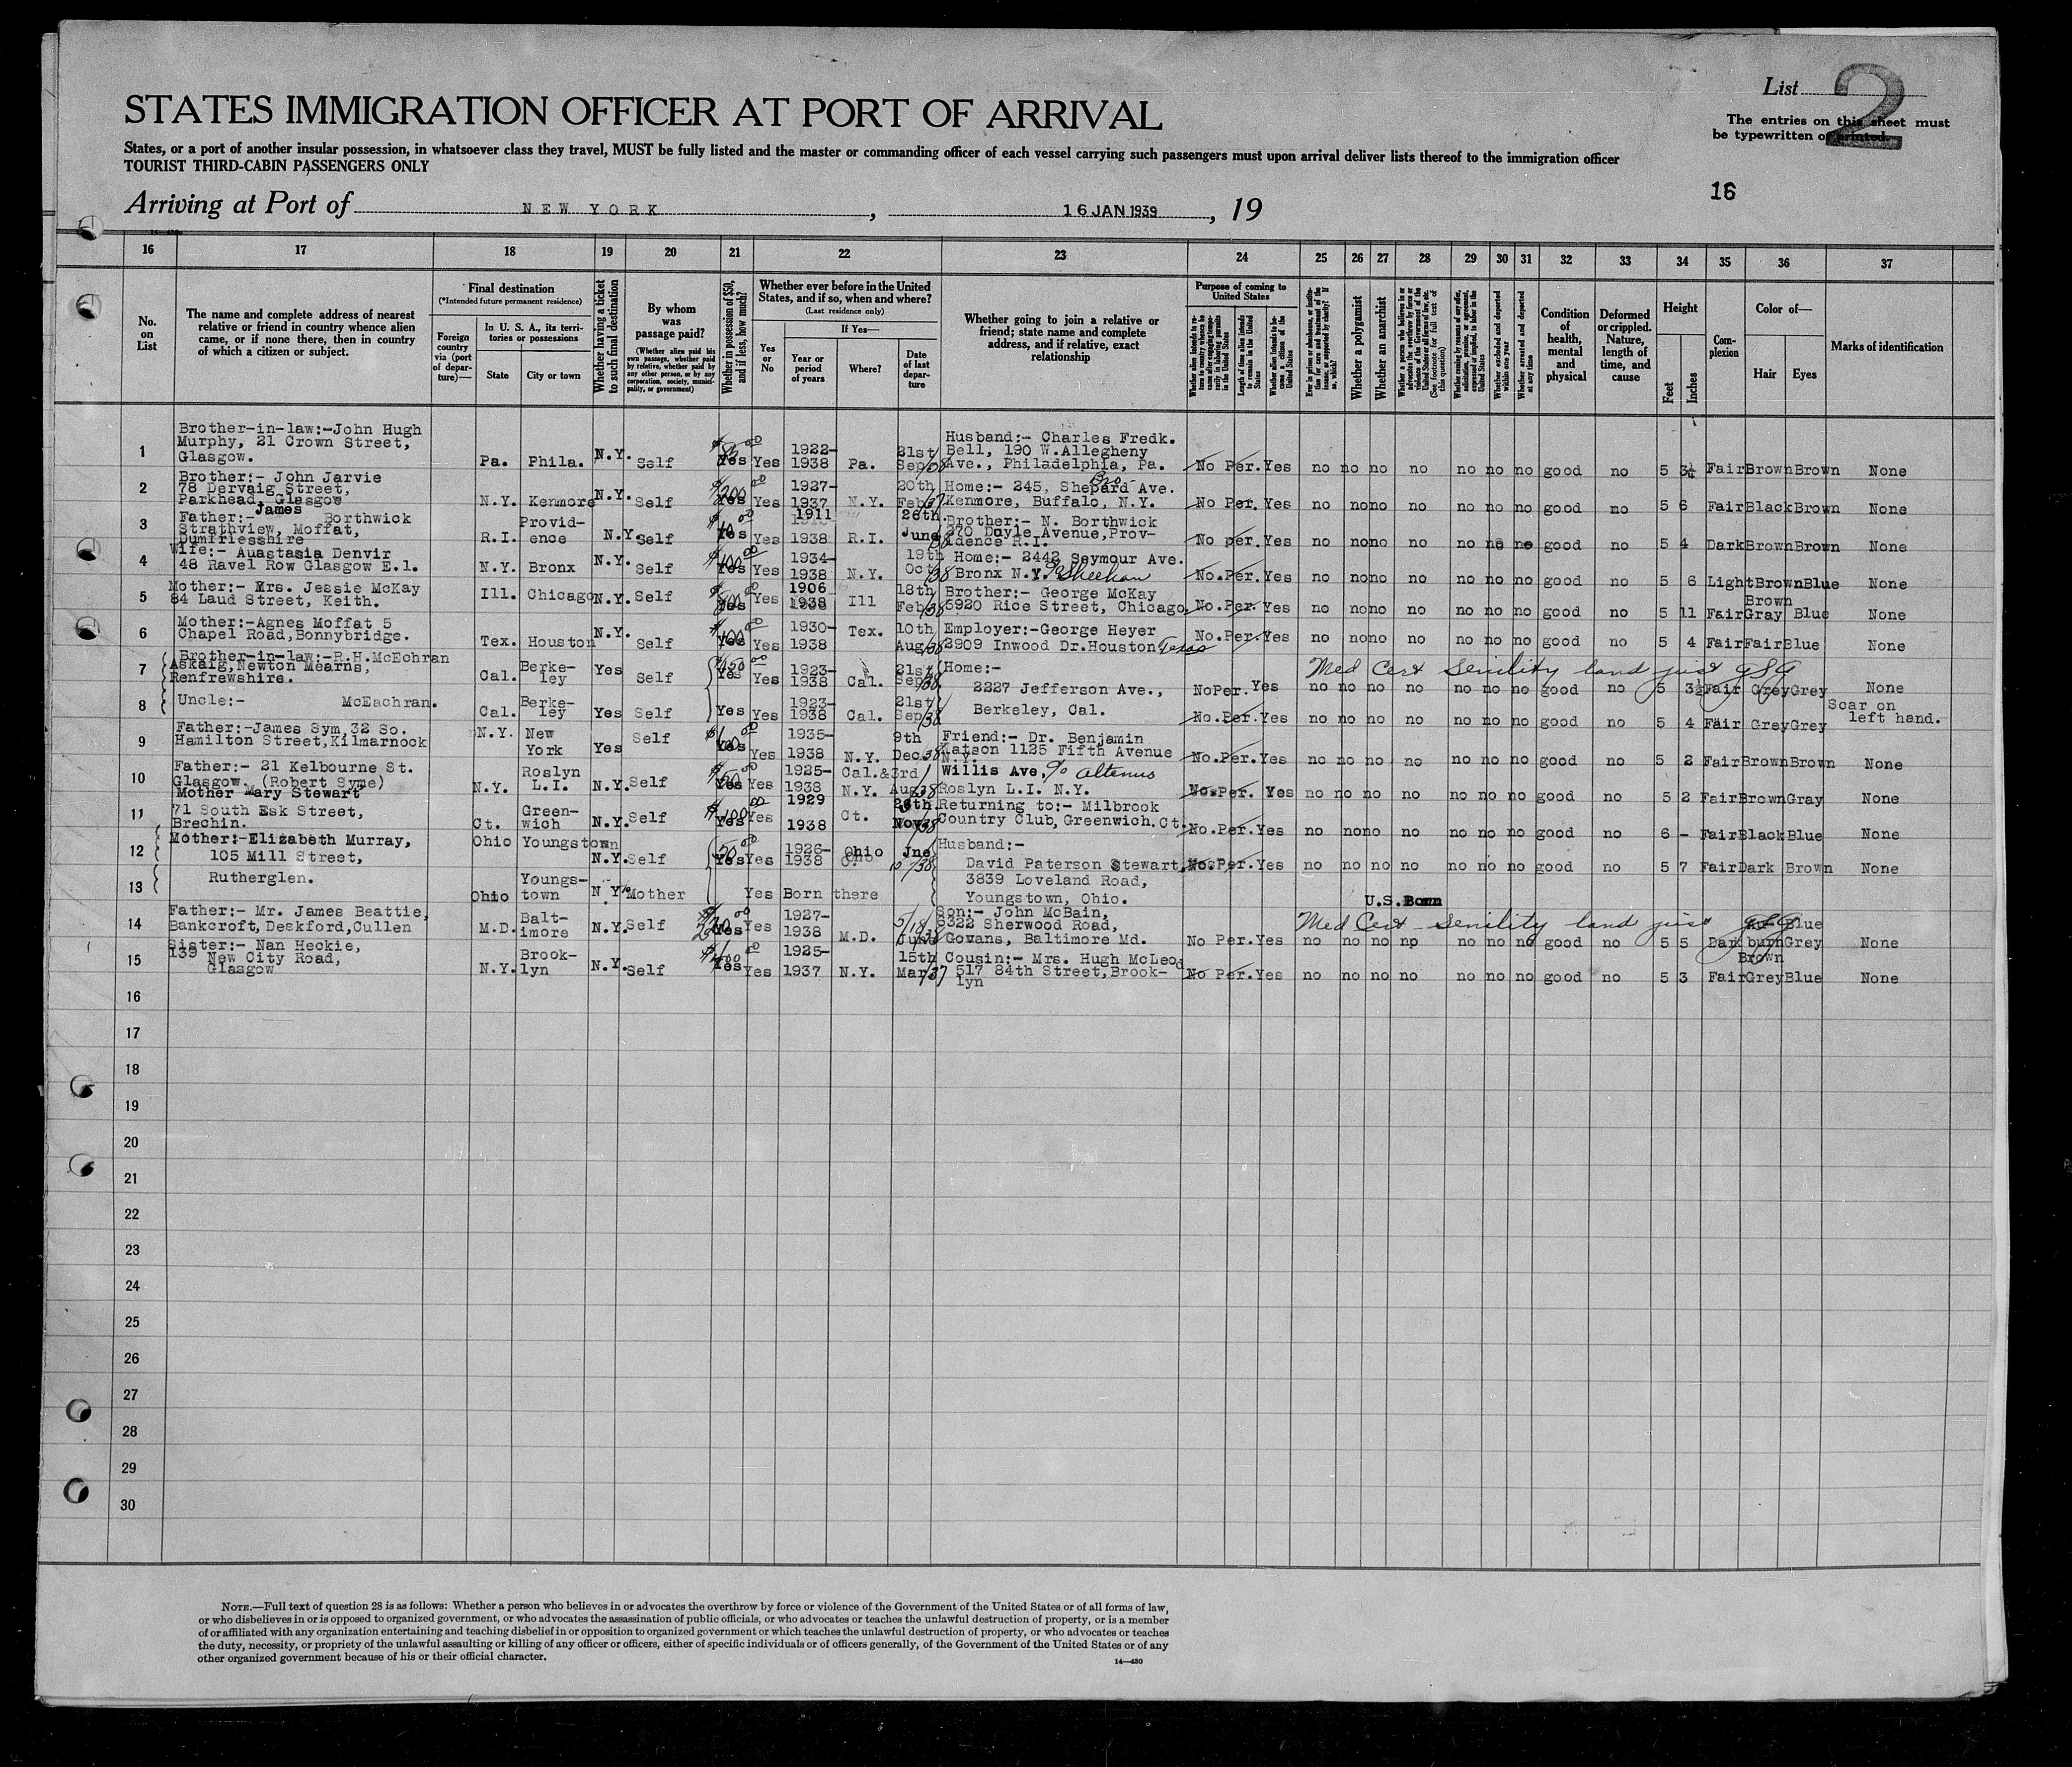 List 2
STATES IMMIGRATION OFFICER AT PORT OF ARRIVAL
The entries on this sheet must
be typewritten or printed.
States, or a port of another insular possession, in whatsoever class they travel, MUST be fully listed and the master or commanding officer of each vessel carrying such passengers must upon arrival deliver lists thereof to the immigration officer
TOURIST THIRD-CABIN PASSENGERS ONLY
16
Arriving at Port of NEW YORK, 16 JAN 1939, 19
16 17 18 19 20 21 22 23 24 25 26 27 28 29 30 31 32 33 34 35 36 37
No. on List
The name and complete address of nearest relative or friend in country whence alien came, or if none there, then in country of which a citizen or subject.
Final destination
(*Intended future permanent residence)
Foreign country via (port of departure)—
In U. S. A., its territories or possessions
State City or town
Whether having a ticket to such final destination
By whom was passage paid?
(Whether alien paid his own passage, whether paid by relative, whether paid by any other person, or by any corporation, society, municipality, or government)
Whether in possession of $50, and if less, how much?
Whether ever before in the United States, and if so, when and where?
(Last residence only)
Yes or No
If Yes—
Year or period of years
Where?
Date of last departure
Whether going to join a relative or friend; state name and complete address, and if relative, exact relationship
Purpose of coming to United States
Whether alien intends to return to country whence he came after engaging temporarily in laboring pursuits in the United States
Length of time alien intends to remain in the United States
Whether alien intends to become a citizen of the United States
Ever in prison or almshouse, or institution for care and treatment of the insane, or supported by charity? If so, which?
Whether a polygamist
Whether an anarchist
Whether a person who believes in or advocates the overthrow by force or violence of the Government of the United States or all forms of law, etc. (See footnote for full text of this question)
Whether coming by reason of any offer, solicitation, promise, or agreement, expressed or implied, to labor in the United States
Whether excluded and deported within one year
Whether arrested and deported at any time
Condition of health, mental and physical
Deformed or crippled. Nature, length of time, and cause
Height
Feet Inches
Complexion
Color of—
Hair Eyes
Marks of identification
1 Brother-in-law:-John Hugh
Murphy, 21 Crown Street,
Glasgow.
Pa. Phila. N.Y. Self Yes Yes 1922-
1938 Pa. 21st
Sep/38
Husband:- Charles Fredk.
Bell, 190 W.Allegheny
Ave., Philadelphia, Pa.
No Per. Yes no no no no no no no good no 5 3½ Fair Brown Brown None
2 Brother:- John Jarvie
78 Dervaig Street,
Parkhead, Glasgow
N.Y. Kenmore N.Y. Self $200 Yes Yes 1927-
1937 N.Y. 20th
Feb/37
Home:- 245, Shepard Ave.
Kenmore, Buffalo, N.Y.
No Per. Yes no no no no no no no good no 5 6 Fair Black Brown None
3 Father:- James Borthwick
Strathview, Moffat,
Dumfriesshire
R.I. Providence N.Y. Self Yes Yes 1911
1938 R.I. 26th
June/38
Brother:- N. Borthwick
270 Doyle Avenue, Providence R.I.
No per. Yes no no no no no no no good no 5 4 Dark Brown Brown None
4 Wife:- Anastasia Denvir
48 Ravel Row Glasgow E.1.
N.Y. Bronx N.Y. Self $100 Yes Yes 1934-
1938 N.Y. 19th
Oct/38
Home:- 2442 Seymour Ave.
Bronx N.Y. % Sheehan
No. Per. Yes no no no no no no no good no 5 6 Light Brown Blue None
5 Mother:- Mrs. Jessie McKay
84 Laud Street, Keith.
Ill. Chicago N.Y. Self Yes Yes 1906
1938 Ill 18th
Feb/38
Brother:- George McKay
5920 Rice Street, Chicago.
No. Per. Yes no no no no no no no good no 5 11 Fair Brown
Gray Blue None
6 Mother:-Agnes Moffat 5
Chapel Road, Bonnybridge.
Tex. Houston N.Y. Self $100 Yes Yes 1930-
1938 Tex. 10th
Aug/38
Employer:-George Heyer
2909 Inwood Dr.Houston Texas
No. Per. Yes no no no no no no no good no 5 4 Fair Fair Blue None
7 Brother-in-law:-R.H.McEchran
Askaig, Newton Mearns,
Renfrewshire.
Cal. Berkeley Yes Self Yes Yes 1923-
1938 Cal. 21st
Sep/38
Home:-
2227 Jefferson Ave.,
Med Cert Senility land just GSG
No Per. Yes no no no no no no no good no 5 3½ Fair Grey Grey None
8 Uncle:- McEachran.
Cal. Berkeley Yes Self Yes Yes 1923-
1938 Cal. 21st
Sep/38
Berkeley, Cal.
No. Per. Yes no no no no no no no good no 5 4 Fair Grey Grey Scar on
left hand.
9 Father:-James Sym, 32 So.
Hamilton Street, Kilmarnock
N.Y. New
York Yes Self $100 Yes Yes 1935-
1938 N.Y. 9th
Dec/38
Friend:- Dr. Benjamin
Watson 1125 Fifth Avenue
N.Y.
No. Per. Yes no no no no no no no good no 5 2 Fair Brown Brown None
10 Father:- 21 Kelbourne St.
Glasgow. (Robert Syme)
N.Y. Roslyn
L.I. N.Y. Self $50 Yes Yes 1925-
1938 Cal.&
N.Y. 3rd
Aug/38
Willis Ave. % Altenus
Roslyn L.I. N.Y.
No. Per. Yes no no no no no no no good no 5 2 Fair Brown Gray None
11 Mother Mary Stewart
71 South Esk Street,
Brechin.
Ct. Greenwich N.Y. Self $100 Yes Yes 1929
1938 Ct. Nov/38
Returning to:- Milbrook
Country Club, Greenwich. Ct.
No. Per. Yes no no no no no no no good no 6 - Fair Black Blue None
12 Mother:-Elizabeth Murray,
105 Mill Street,
Ohio Youngstown N.Y. Self 50 Yes Yes 1926-
1938 Ohio Jne
/38
Husband:-
David Paterson Stewart.
No. Per. Yes no no no no no no no good no 5 7 Fair Dark Brown None
13 Rutherglen.
Ohio Youngstown N.Y. Mother Yes Born there
3839 Loveland Road,
Youngstown, Ohio.
U.S. Born
14 Father:- Mr. James Beattie,
Bankcroft, Deskford, Cullen
M.D. Baltimore N.Y. Self Yes Yes 1927-
1938 M.D. 5/18
Son:- John McBain,
6322 Sherwood Road,
Gowans, Baltimore Md.
Med Cert - Senility land just GSG
No Per. Yes no no no np no no no good no 5 5 Grey Blue None
15 Sister:- Nan Heckie,
139 New City Road,
Glasgow
N.Y. Brooklyn N.Y. Self Yes Yes 1925-
1937 N.Y. 15th
Mar/37
Cousin:- Mrs. Hugh McLeod
517 84th Street, Brooklyn
No Per. Yes no no no no no no no good no 5 3 Fair Brown
Grey Blue None
16
17
18
19
20
21
22
23
24
25
26
27
28
29
30
NOTE.—Full text of question 28 is as follows: Whether a person who believes in or advocates the overthrow by force or violence of the Government of the United States or of all forms of law,
or who disbelieves in or is opposed to organized government, or who advocates the assassination of public officials, or who advocates or teaches the unlawful destruction of property, or is a member
of or affiliated with any organization entertaining and teaching disbelief in or opposition to organized government or which teaches the unlawful destruction of property, or who advocates or teaches
the duty, necessity, or propriety of the unlawful assaulting or killing of any officer or officers, either of specific individuals or of officers generally, of the Government of the United States or of any
other organized government because of his or their official character.
14—430